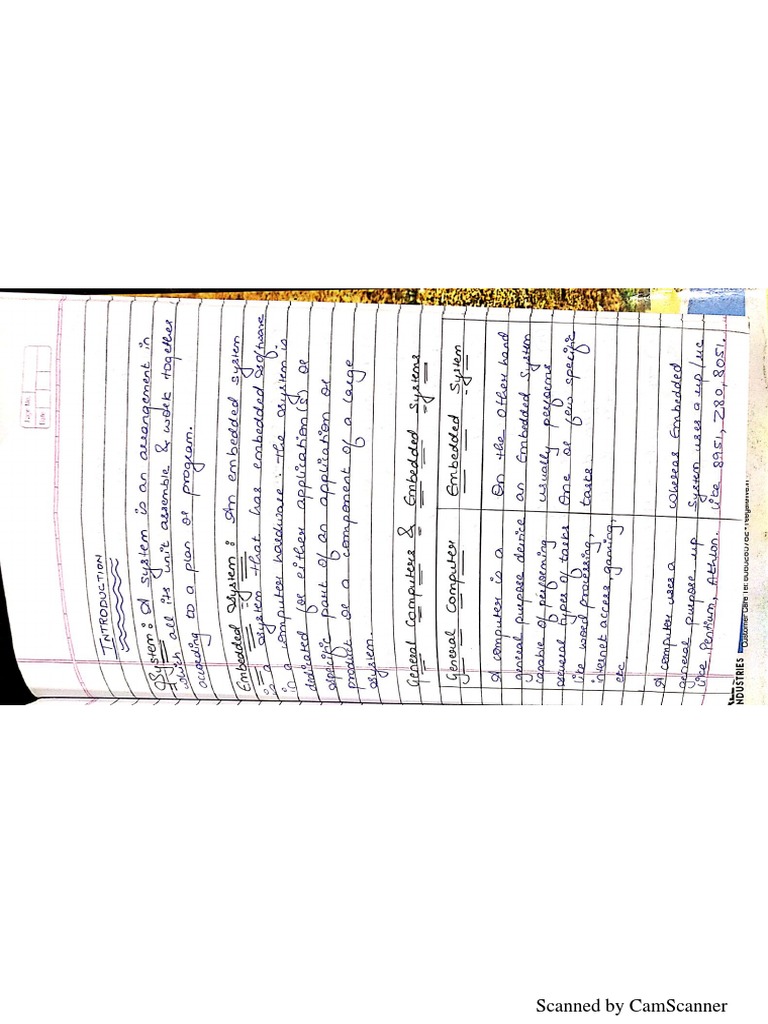 INTRODUCTION
System : A system is an arrangement in
which all its unit assemble & work together
according to a plan or program.
Embedded System : An embedded system
is a system that has embedded software
in a computer hardware. The system is
dedicated for either application(s) or
specific part of an application or
product or a component of a large
system.
General Computers & Embedded Systems
General Computer Embedded System
A computer is a On the other hand
general purpose device an Embedded System
capable of performing usually performs
several types of tasks One or few specific
like word processing, tasks
internet access, gaming,
etc
A computer uses a whereas Embedded
general purpose up System uses a up/uc
like Pentium, Athlon. like 8951, Z80, 8051.
INDUSTRIES
Customer Care Tel:
Scanned by CamScanner